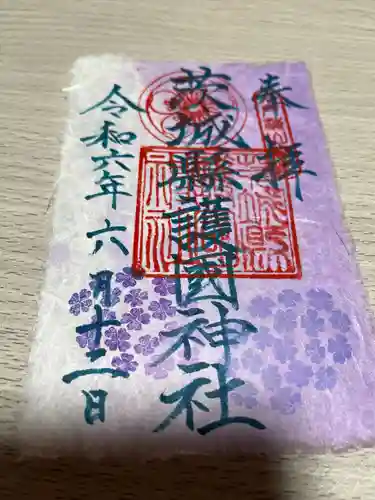 奉拝
茨城縣護國神社
令和六年六月十二日